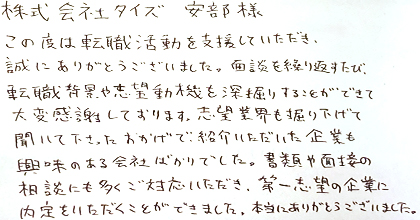 株式会社タイズ 安部様
この度は転職活動を支援していただき、
誠にありがとうございました。面談を繰り返すたび、
転職背景や志望動機を深掘りすることができて
大変感謝しております。志望業界も掘り下げて
聞いて下さったおかげで、紹介いただいた企業も
興味のある会社ばかりでした。書類や面接の
相談にも多くご対応いただき、第一志望の企業に
内定をいただくことができました。本当にありがとうございました。